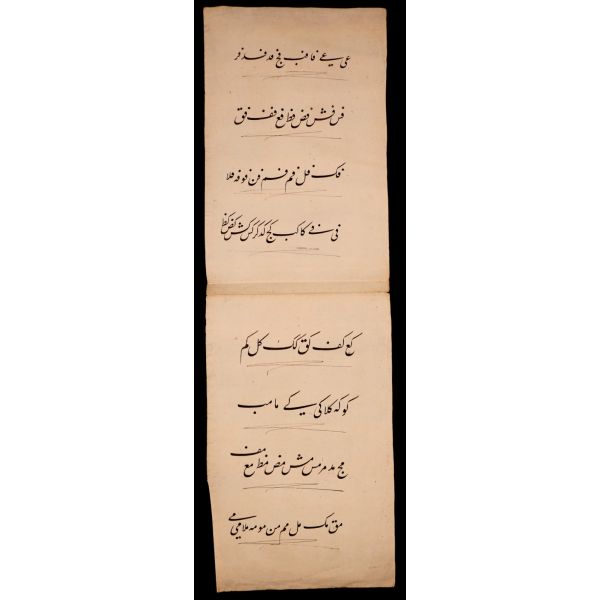 عی عے فا فب فج فد فر
فس فش فص فط فع فف فق
فک فل فم فم فن فو فه فلا
فی فے کا کب کج کد کر کس کش کص کط
کع کف کق کک کل کم
کو که کلا کی کے ما مب
مج مد مر مس مش مص مط مع مف
مق مک مل مم من مو مه ملا می مے